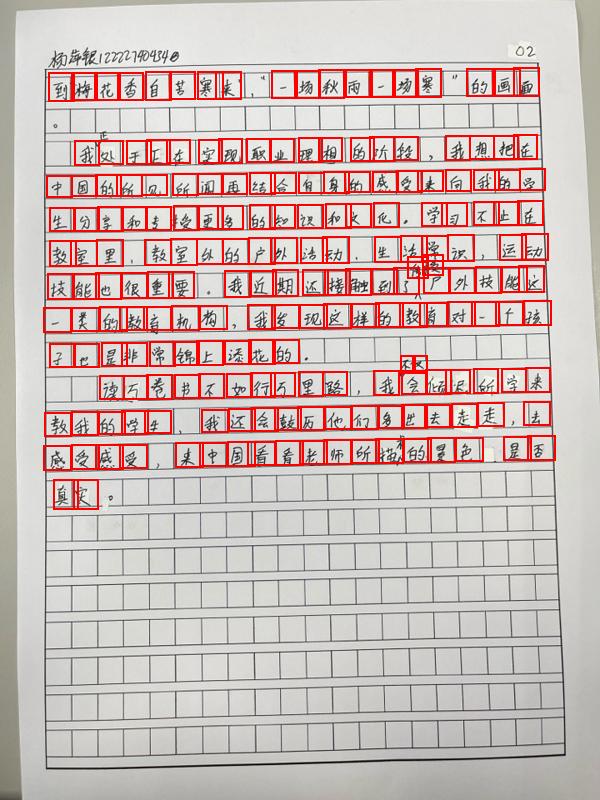 杨萍银12222790434@ 02
到梅花香自苦寒来,"一场秋雨一场寒"的画面
。
我处于正在实现职业理想的阶段,我想把在
中国的所见所闻再结合自身的感受来向我的学
生分享和支援更多的知识和文化。学习不止在
教室里,教室外的户外活动,生活常识,运动
技能也很重要。我近期还接触到了户外技能这
一类的教育机构,我发现这样的教育对一个孩
子也是非常锦上添花的。
读万卷书不如行万里路,我不仅会倾尽所学来
教我的学生,我还会鼓厉他们多出去走走,去
感受感受,来中国看看老师所描术的景色,是否
真实。